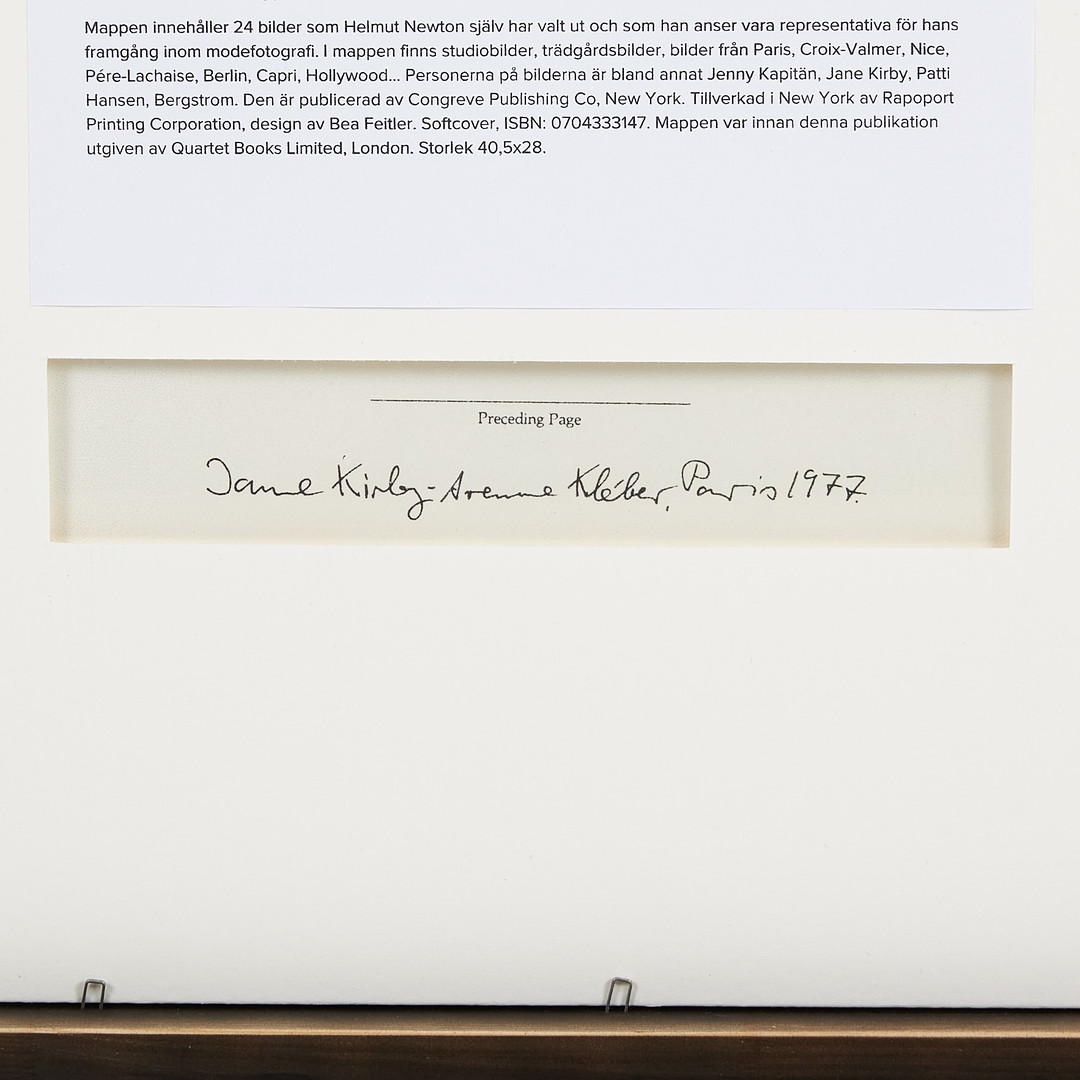 Mappen innehåller 24 bilder som Helmut Newton själv har valt ut och som han anser vara representativa för hans
framgång inom modefotografi. I mappen finns studiobilder, trädgårdsbilder, bilder från Paris, Croix-Valmer, Nice,
Pére-Lachaise, Berlin, Capri, Hollywood... Personerna på bilderna är bland annat Jenny Kapitän, Jane Kirby, Patti
Hansen, Bergstrom. Den är publicerad av Congreve Publishing Co, New York. Tillverkad i New York av Rapoport
Printing Corporation, design av Bea Feitler. Softcover, ISBN: 0704333147. Mappen var innan denna publikation
utgiven av Quartet Books Limited, London. Storlek 40,5x28.
Preceding Page
Jane Kirby - Avenue Kléber, Paris 1977.